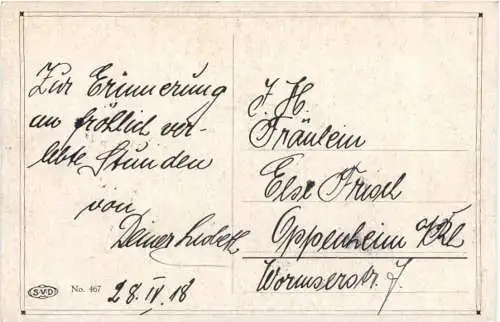 Zur Erinnerung
an fröhlich ver-
lebte Stunden
von
Deiner
28.IV.18
J. H.
Fräulein
Else
Oppenheim
Wormserstr. 7.
SVD
No. 467